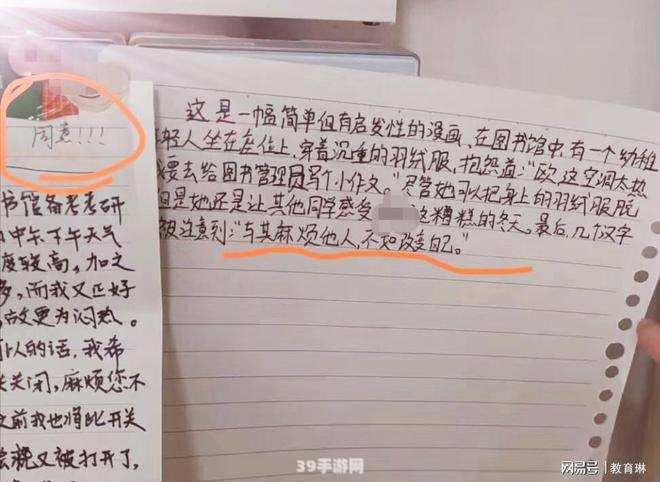 同意!!!
书馆备考考研
中午下午天气
度较高,加之
多,而我又正好
,故更为闷热。
以的话,我希
关闭,麻烦您不
之前我也将此开关
就又被打开了,
这是一幅简单但有启发性的漫画、在图书馆中,有一个幼稚
轻人坐在座位上,穿着沉重的羽绒服,抱怨道:"欧,这空调太热
我要去给图书管理员写个小作文。"尽管她可以把身上的羽绒服脱
但是她还是让其他同学感受 这糟糕的冬天。最后,几个汉字
被注意到:"与其麻烦他人,不如改变自己。"
39手游网
网易号 | 教育琳